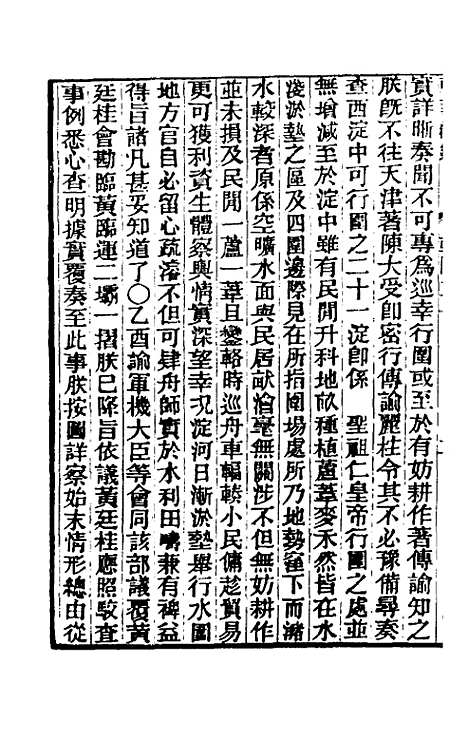 實詳晰奏聞不可專為巡幸行圍或至於有妨耕作著傳諭知之
朕旣不往天津著陳大受卽密行傳諭麗桂令其不必豫備尋奏
查西淀中可行圍之二十一淀卽係　聖祖仁皇帝行圍之處並
無增減至於淀中雖有民間升科地畝種植蘆葦麥禾然皆在水
淺淤墊之區及四圍邊際見在所指圍場處所乃地勢窪下而瀦
水較深者原係空曠水面與民居畝澮毫無關涉不但無妨耕作
並未損及民間一蘆一葦且鑾輅時巡舟車輻輳小民傭趁貿易
更可獲利資生體察輿情實深望幸況淀河日漸淤墊舉行水圍
地方官自必留心疏濬不但可肄舟師實於水利田疇兼有裨益
得旨諸凡甚妥知道了○乙酉諭軍機大臣等會同該部議覆黃
廷桂會勘臨黃臨運二壩一摺朕已降旨依議黃廷桂應照駮查
事例悉心查明據實覆奏至此事朕按圖詳察始末情形總由從